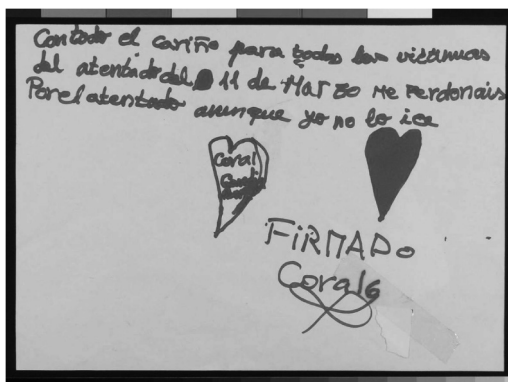 Con todo el cariño para todas las victimas
del atentado del 11 de Marzo me Perdonais
Por el atentado aunque yo no lo ice
Coral
FIRMADO
Coral